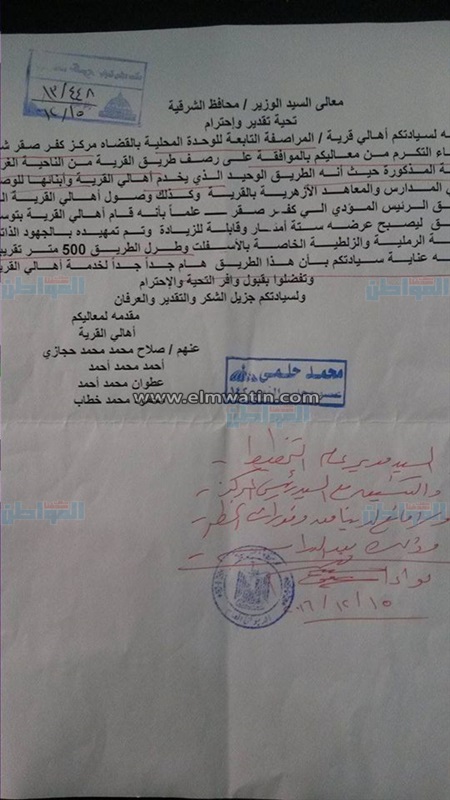 ١٣/٤٤٨
١٢/١٥
معالى السيد الوزير / محافظ الشرقية
تحية تقدير وإحترام
ه لسيادتكم أهالي قرية / المراصفة التابعة للوحدة المحلية بالقضاه مركز كفر صقر ش
اء التكرم من معاليكم بالموافقة على رصف طريق القرية من الناحية الغر
ة المذكورة حيث أنه الطريق الوحيد الذي يخدم أهالي القرية وأبنائها للوص
ي المدارس والمعاهد الأزهرية بالقرية وكذلك وصول أهالي القرية ال
ق الرئيس المؤدي الي كفر صقر علماً بأنه قام أهالي القرية بتوس
ق ليصبح عرضه ستة أمتار وقابلة للزيادة وتم تمهيده بالجهود الذات
ة الرملية والزلطية الخاصة بالأسفلت وطول الطريق 500 متر تقريب
ه عناية سيادتكم بأن هذا الطريق هام جداً جداً لخدمة أهالي القري
وتفضلوا بقبول وافر التحية والإحترام
ولسيادتكم جزيل الشكر والتقدير والعرفان
مقدمه لمعاليكم
أهالي القرية
عنهم / صلاح محمد محمد حجازي
أحمد محمد أحمد
عطوان محمد أحمد
محمد خطاب
محمد حلمى
www.elmwatin.com
المواطن
السيد مدير عام التخطيط
والتنسيق مع السيد رئيس المركز
١٦/١٢/١٥